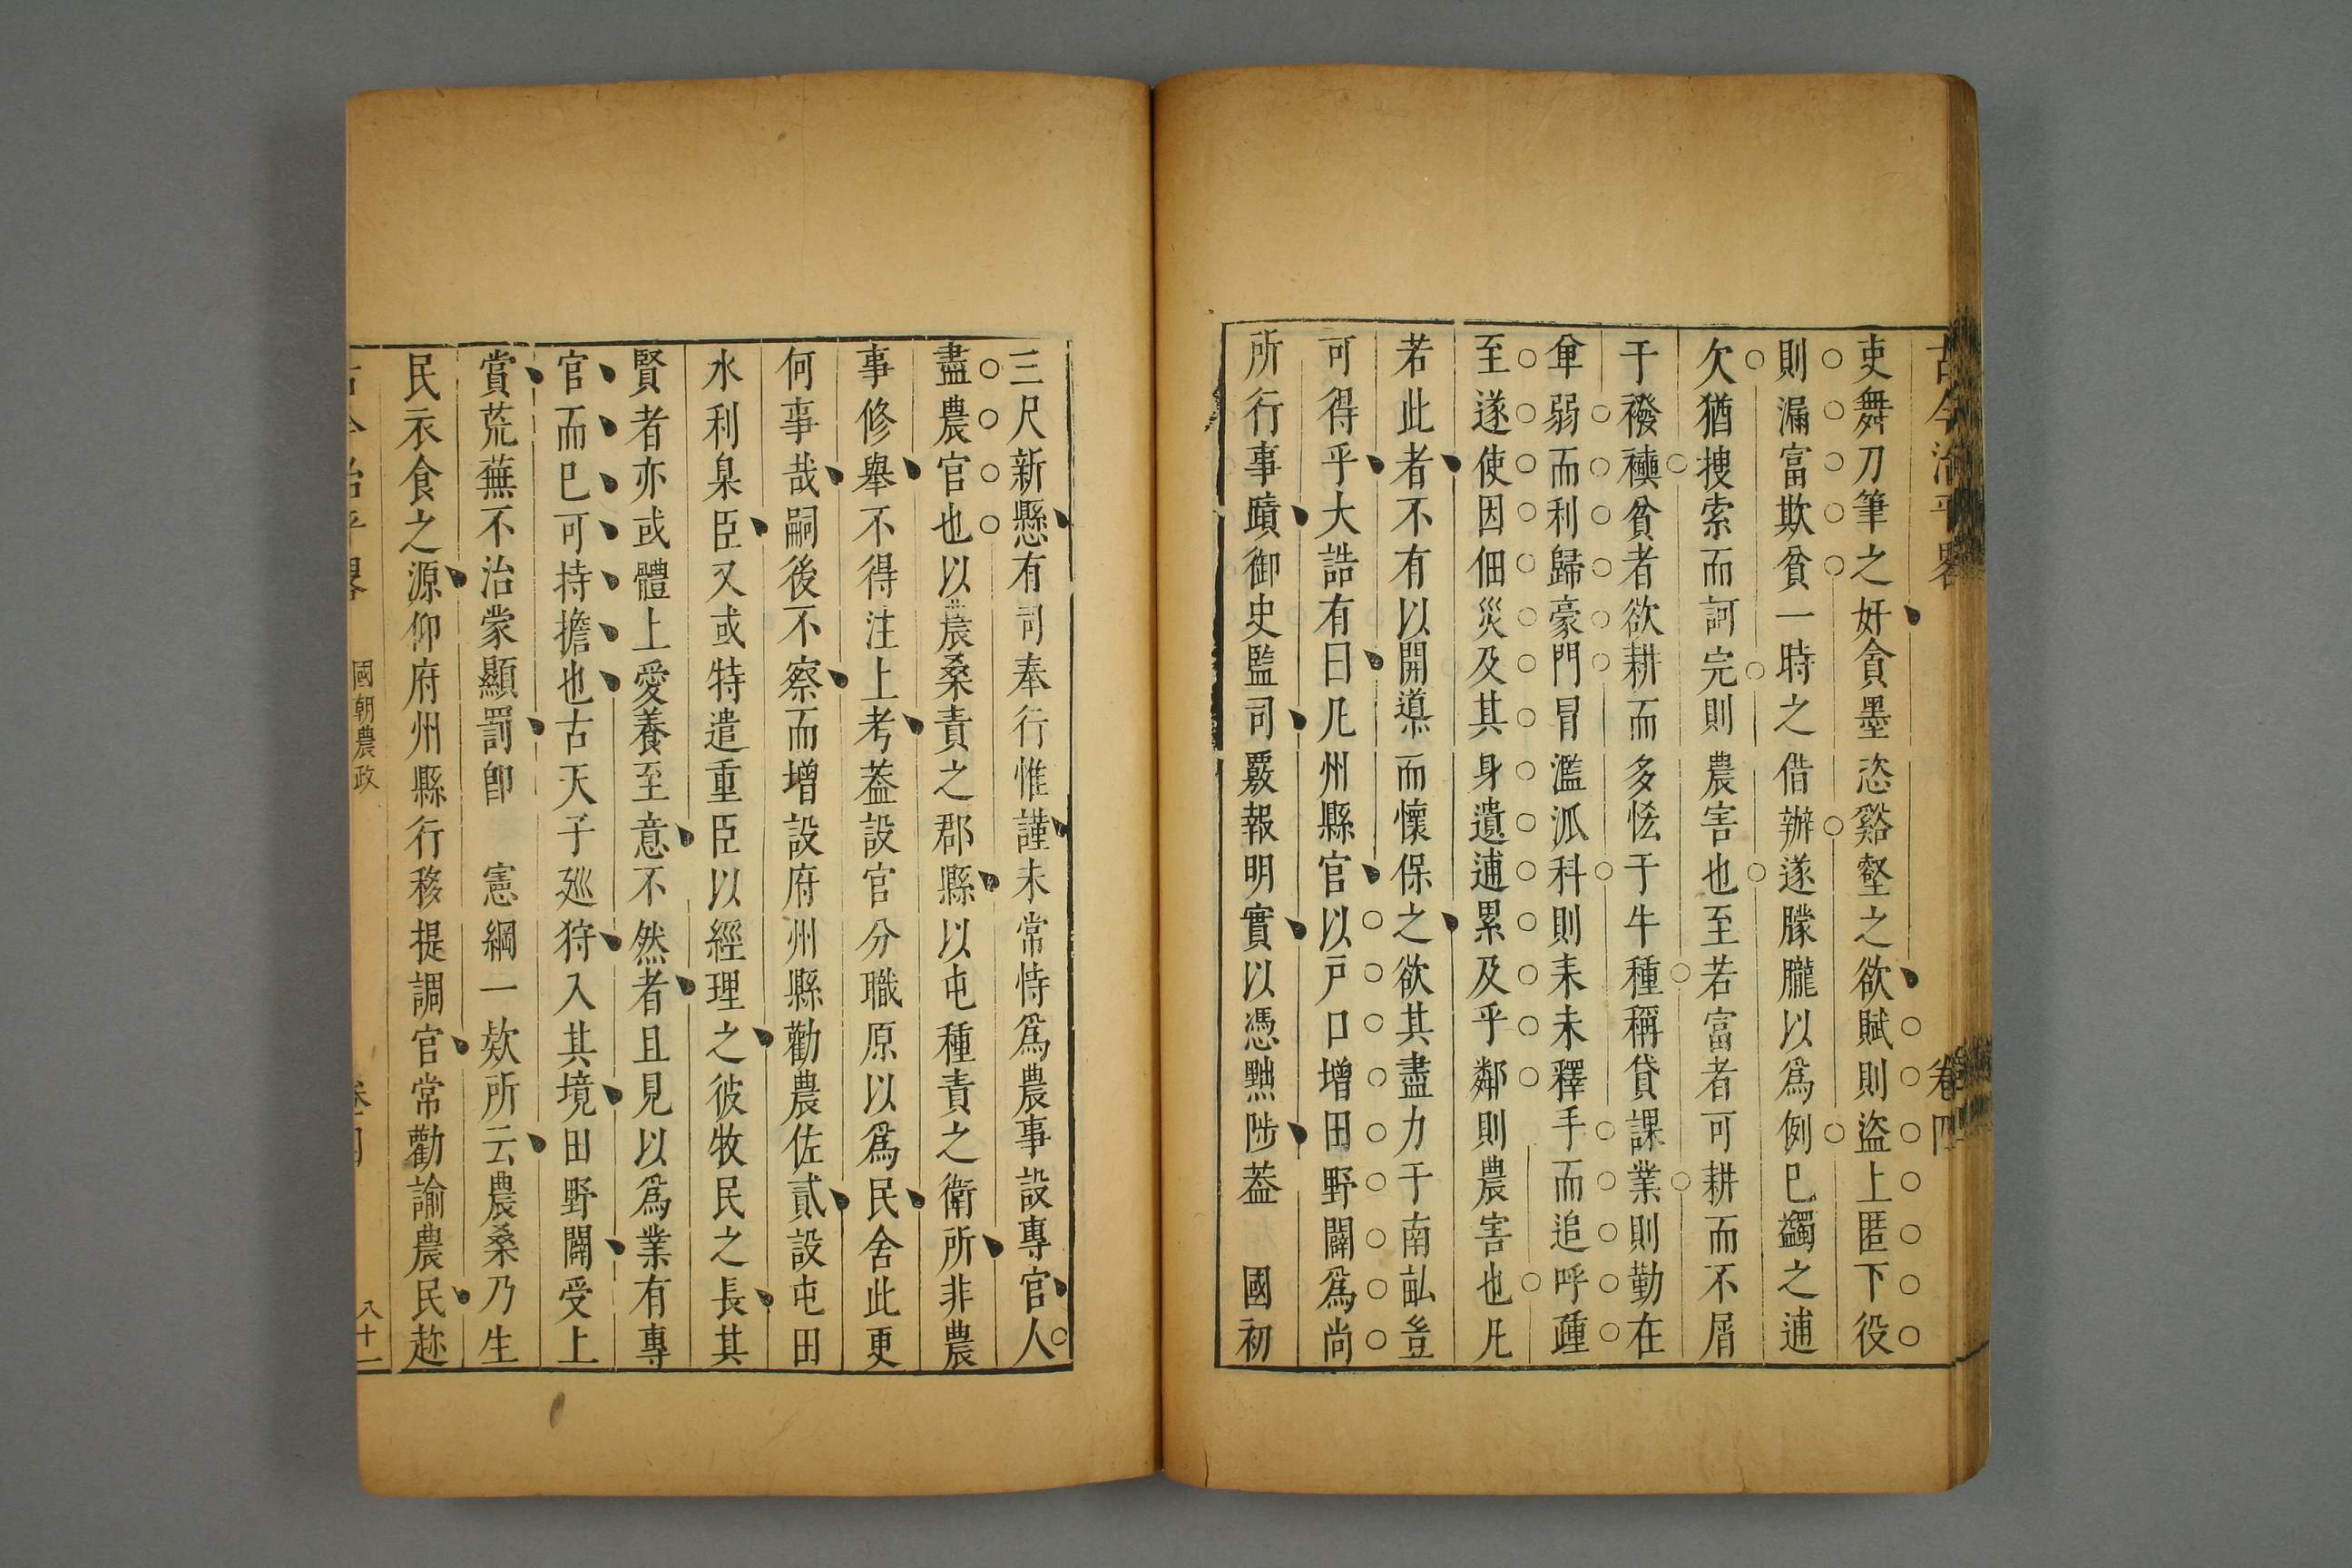 古今治平畧 卷四
吏舞刀筆之奸貪墨恣谿壑之欲賦則盜上匿下役
則漏富欺貧一時之借辦遂朦朧以爲例巳蠲之逋
欠猶搜索而訶完則農害也至若富者可耕而不屑
于襏襫貧者欲耕而多恡于牛種稱貸課業則勤在
單弱而利歸豪門冒濫派科則耒未釋手而追呼踵
至遂使因佃災及其身遺逋累及乎鄰則農害也凡
若此者不有以開導而懷保之欲其盡力于南畝豈
可得乎大誥有曰凡州縣官以戸口增田野闢爲尚
所行事蹟御史監司覈報明實以憑黜陟葢 國初
三尺新懸有司奉行惟謹未常恃爲農事設專官人
盡農官也以農桑責之郡縣以屯種責之衛所非農
事修舉不得注上考葢設官分職原以爲民舍此更
何事哉嗣後不察而增設府州縣勸農佐貳設屯田
水利臬臣又或特遣重臣以經理之彼牧民之長其
賢者亦或體上愛養至意不然者且見以爲業有專
官而巳可持擔也古天子廵狩入其境田野闢受上
賞荒蕪不治蒙顯罰卽 憲綱一欵所云農桑乃生
民衣食之源仰府州縣行移提調官常勸諭農民趂
古今治平畧 國朝農政 卷四 八十一